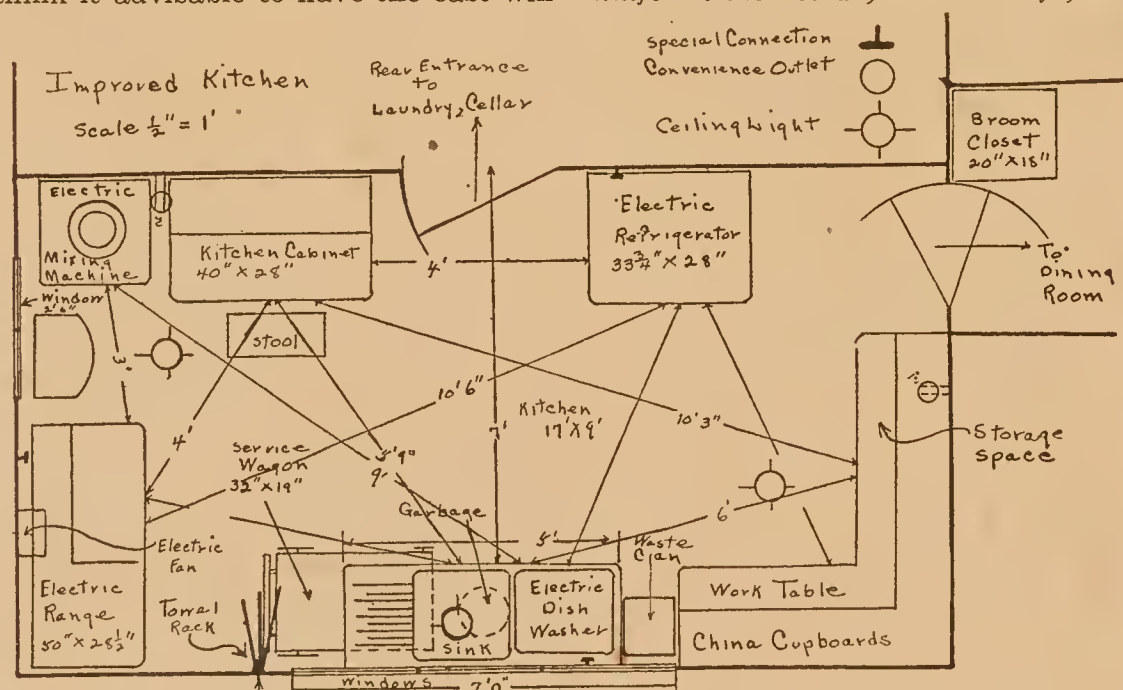 Improved Kitchen
Scale ½" = 1'
Rear Entrance
to
Laundry, Cellar
Special Connection
Convenience Outlet
Ceiling Light
Broom
Closet
20" X 18"
Electric
Mixing
Machine
Kitchen Cabinet
40" X 28"
4'
Electric
Refrigerator
33¾" X 28"
To
Dining
Room
Window
2'6"
Stool
3'
4'
10'6"
Kitchen
17' X 9'
7'
10'3"
Storage
Space
Service
Wagon
32" X 19"
9'
Garbage
6'
5'
Waste
Can
Electric
Fan
Electric
Range
50" X 28½"
Towel
Rack
Sink
Electric
Dish
Washer
Work Table
China Cupboards
Windows 7'0"